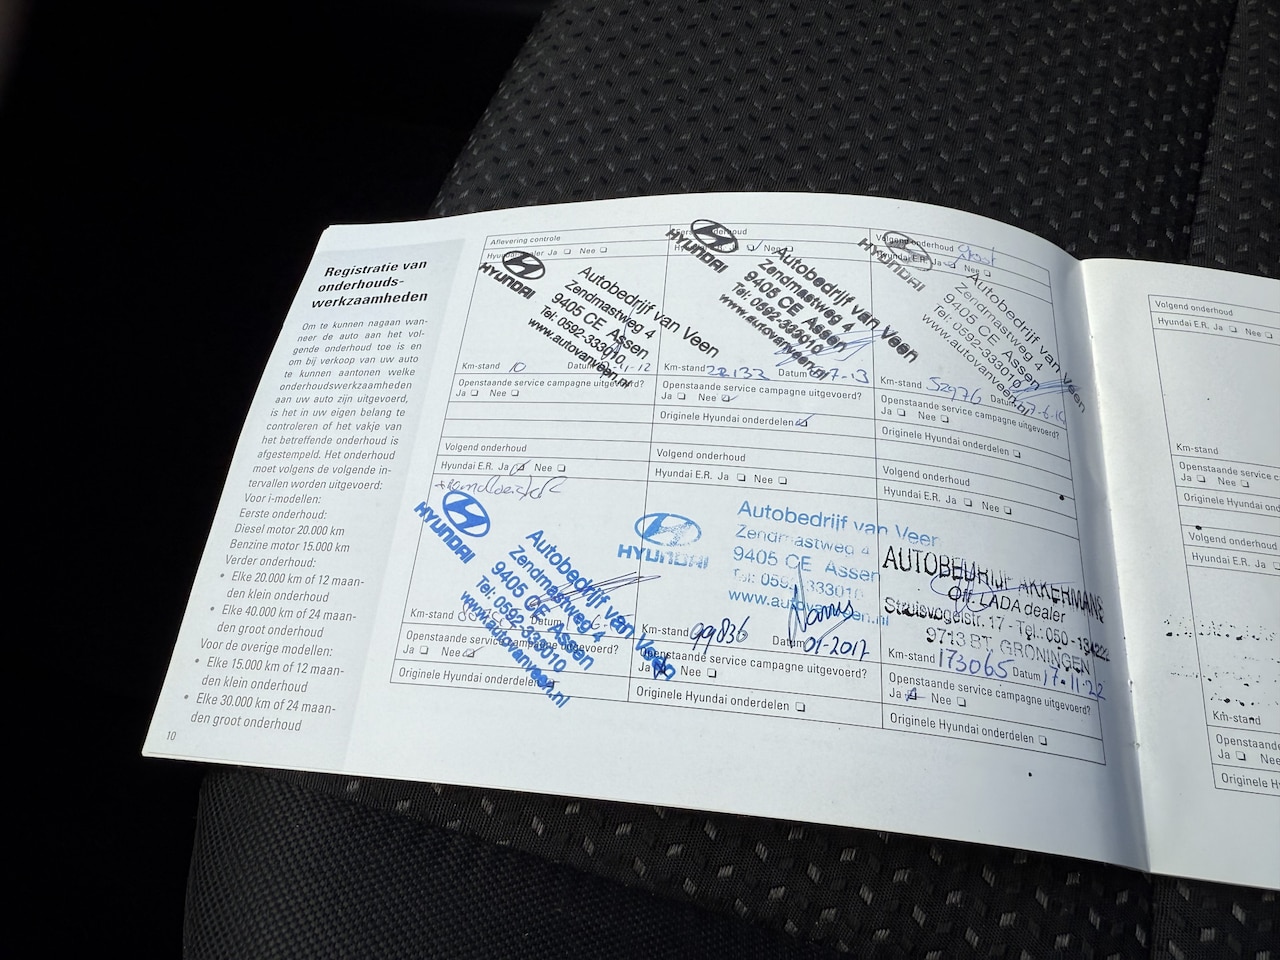 Registratie van
onderhouds-
werkzaamheden
Om te kunnen nagaan wan-
neer de auto aan het vol-
gende onderhoud toe is en
om bij verkoop van uw auto
te kunnen aantonen welke
onderhoudswerkzaamheden
aan uw auto zijn uitgevoerd,
is het in uw eigen belang te
controleren of het vakje van
het betreffende onderhoud is
afgestempeld. Het onderhoud
moet volgens de volgende in-
tervallen worden uitgevoerd:
Voor i-modellen:
Eerste onderhoud:
Diesel motor 20.000 km
Benzine motor 15.000 km
Verder onderhoud:
• Elke 20.000 km of 12 maan-
den klein onderhoud
• Elke 40.000 km of 24 maan-
den groot onderhoud
Voor de overige modellen:
• Elke 15.000 km of 12 maan-
den klein onderhoud
• Elke 30.000 km of 24 maan-
den groot onderhoud
10
Aflevering controle
Ja ❏ Nee ❏
HYUNDAI
Autobedrijf van Veen
Zendmastweg 4
9405 CE Assen
Tel: 0592-333010
www.autovanveen.nl
Km-stand 10
Openstaande service campagne uitgevoerd?
Ja ❏ Nee ❏
onderhoud
Nee ❏
HYUNDAI
Autobedrijf van Veen
Zendmastweg 4
9405 CE Assen
Tel: 0592-333010
www.autovanveen.nl
Km-stand 22132 Datum 7-13
Openstaande service campagne uitgevoerd?
Ja ❏ Nee ❏
Originele Hyundai onderdelen ❏
Volgend onderhoud
Hyundai E.R. Ja ❏ Nee ❏
HYUNDAI
Autobedrijf van Veen
Zendmastweg 4
9405 CE Assen
Tel: 0592-333010
www.autovanveen.nl
Km-stand 52976 Datum
Openstaande service campagne uitgevoerd?
Ja ❏ Nee ❏
Originele Hyundai onderdelen ❏
Volgend onderhoud
Hyundai E.R. Ja ❏ Nee ❏
HYUNDAI
Autobedrijf van Veen
Zendmastweg 4
9405 CE Assen
Tel: 0592-333010
www.autovanveen.nl
Km-stand Datum
Openstaande service
Ja ❏ Nee ❏
Originele Hyundai onderdelen
Volgend onderhoud
Hyundai E.R. Ja ❏ Nee ❏
HYUNDAI
Autobedrijf van Veen
Zendmastweg 4
9405 CE Assen
Tel: 0592-333010
www.autovanveen.nl
Km-stand 99836 Datum 01-2017
Openstaande service campagne uitgevoerd?
Ja ❏ Nee ❏
Originele Hyundai onderdelen ❏
Volgend onderhoud
Hyundai E.R. Ja ❏ Nee ❏
AUTOBEDRIJF AKKERMANS
Off. LADA dealer
9713 BT GRONINGEN
Km-stand 173065 Datum 17-11-22
Openstaande service campagne uitgevoerd?
Ja ❏ Nee ❏
Originele Hyundai onderdelen ❏
Volgend onderhoud
Hyundai E.R. Ja ❏ Nee ❏
Km-stand
Openstaande service c
Ja ❏ Nee ❏
Originele Hyundai ond
Volgend onderhoud
Hyundai E.R. Ja ❏
Km-stand
Openstaande
Ja ❏ Nee
Originele H